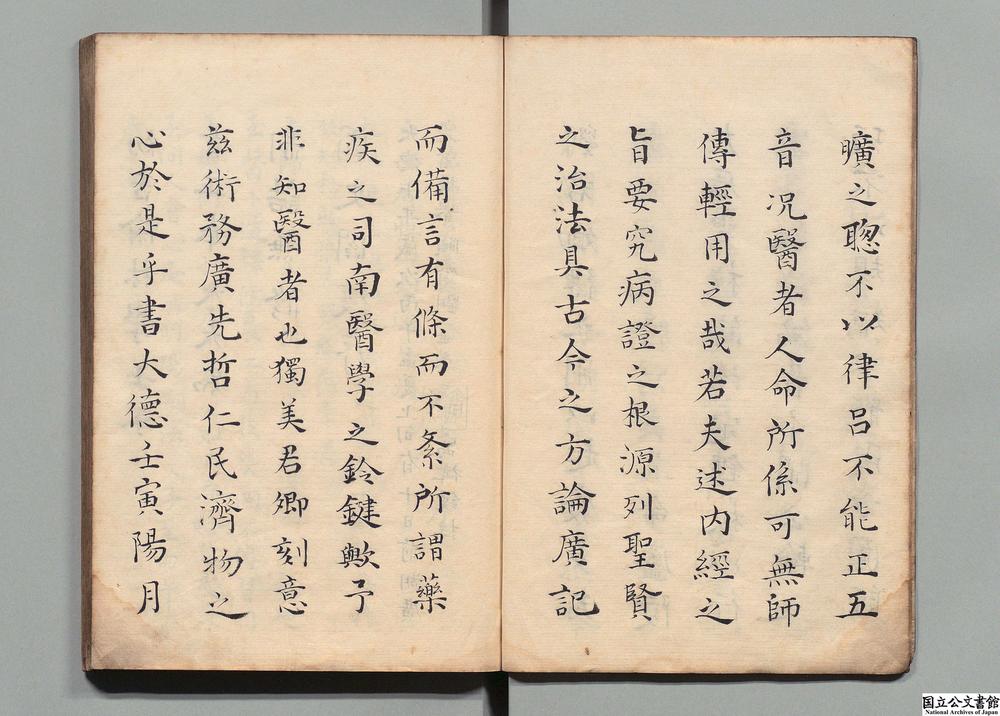 曠之聦不以律呂不能正五
音况醫者人命所係可無師
傳輕用之哉若夫述内經之
旨要究病證之根源列聖賢
之治法具古今之方論廣記
而備言有條而不紊所謂藥
疾之司南醫學之鈐鍵歟予
非知醫者也獨美君卿刻意
兹術務廣先哲仁民濟物之
心於是乎書大德壬寅陽月
国立公文書館
National Archives of Japan